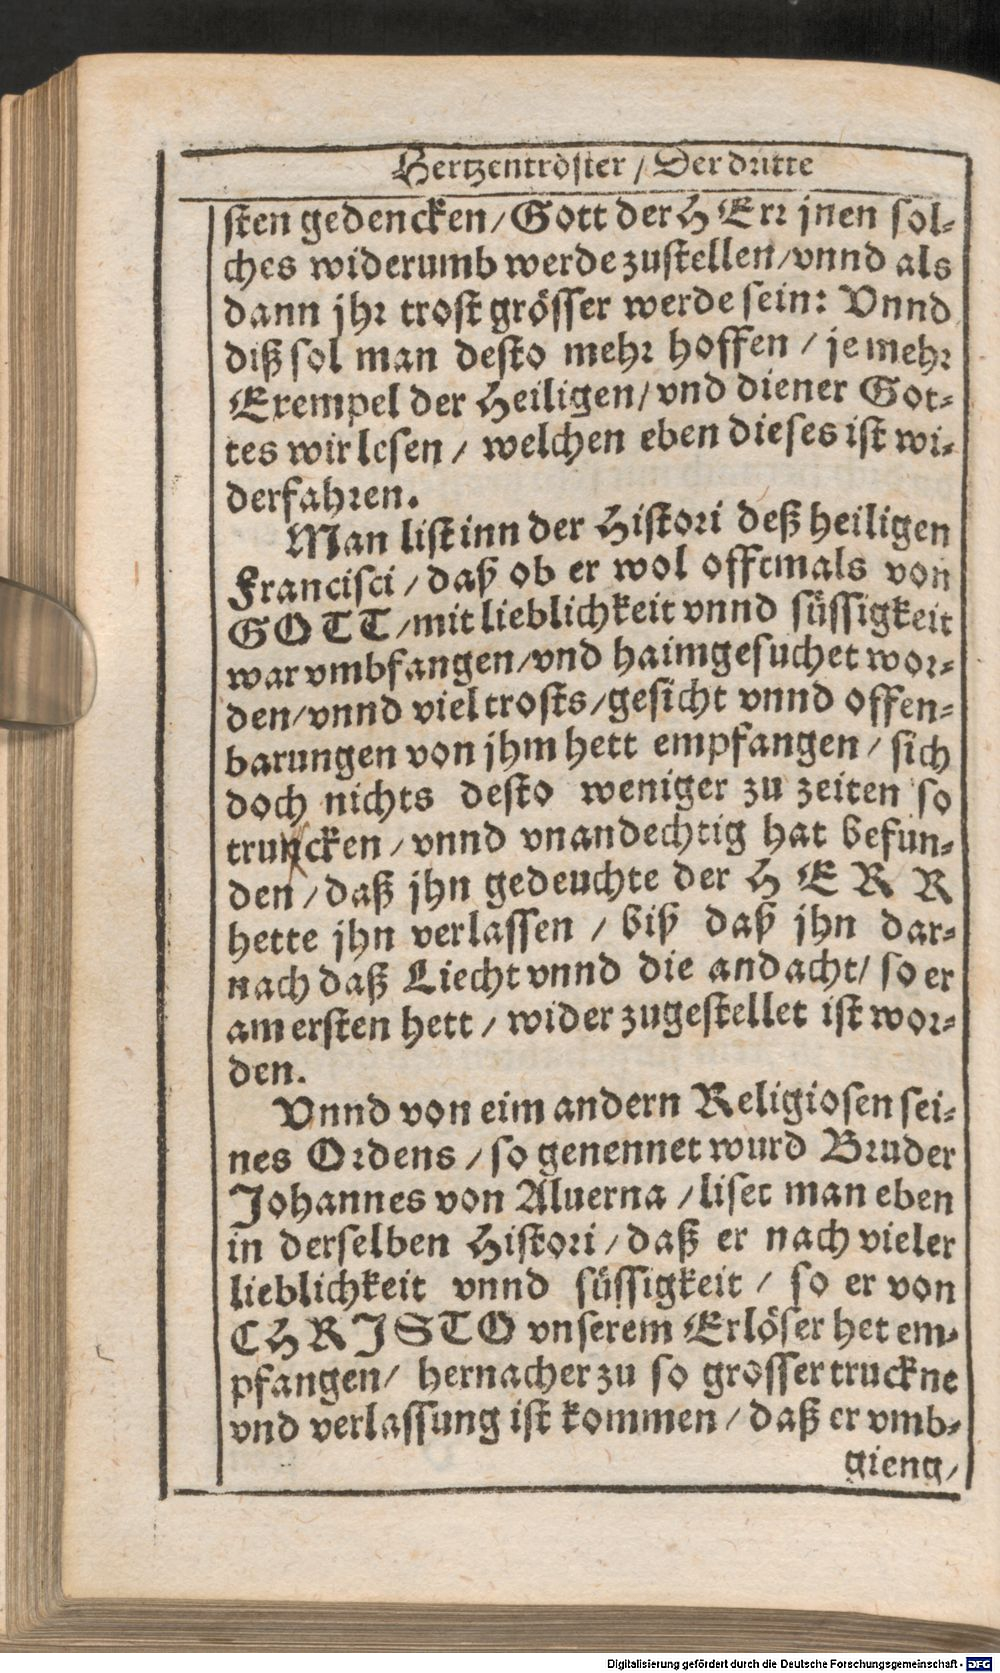 Hertzentröster / Der dritte
sten gedencken / Gott der HErr jnen sol-
ches widerumb werde zustellen / vnnd als
dann jhr trost grösser werde sein: Vnnd
diß sol man desto mehr hoffen / je mehr
Exempel der Heiligen / vnd diener Got-
tes wir lesen / welchen eben dieses ist wi-
derfahren.
Man list inn der Histori deß heiligen
Francisci / daß ob er wol offtmals von
GOTT / mit lieblichkeit vnnd süssigkeit
war vmbfangen / vnd haimgesuchet wor-
den / vnnd viel trosts / gesicht vnnd offen-
barungen von jhm hett empfangen / sich
doch nichts desto weniger zu zeiten so
truncken / vnnd vnandechtig hat befun-
den / daß jhn gedeuchte der HERR
hette jhn verlassen / biß daß jhn dar-
nach daß Liecht vnnd die andacht / so er
am ersten hett / wider zugestellet ist wor-
den.
Vnnd von eim andern Religiosen sei-
nes Ordens / so genennet wurd Bruder
Johannes von Aluerna / liset man eben
in derselben Histori / daß er nach vieler
lieblichkeit vnnd süssigkeit / so er von
CHRISTO vnserem Erlöser het em-
pfangen / hernacher zu so grosser truckne
vnd verlassung ist kommen / daß er vmb-
gieng /
Digitalisierung gefördert durch die Deutsche Forschungsgemeinschaft - DFG